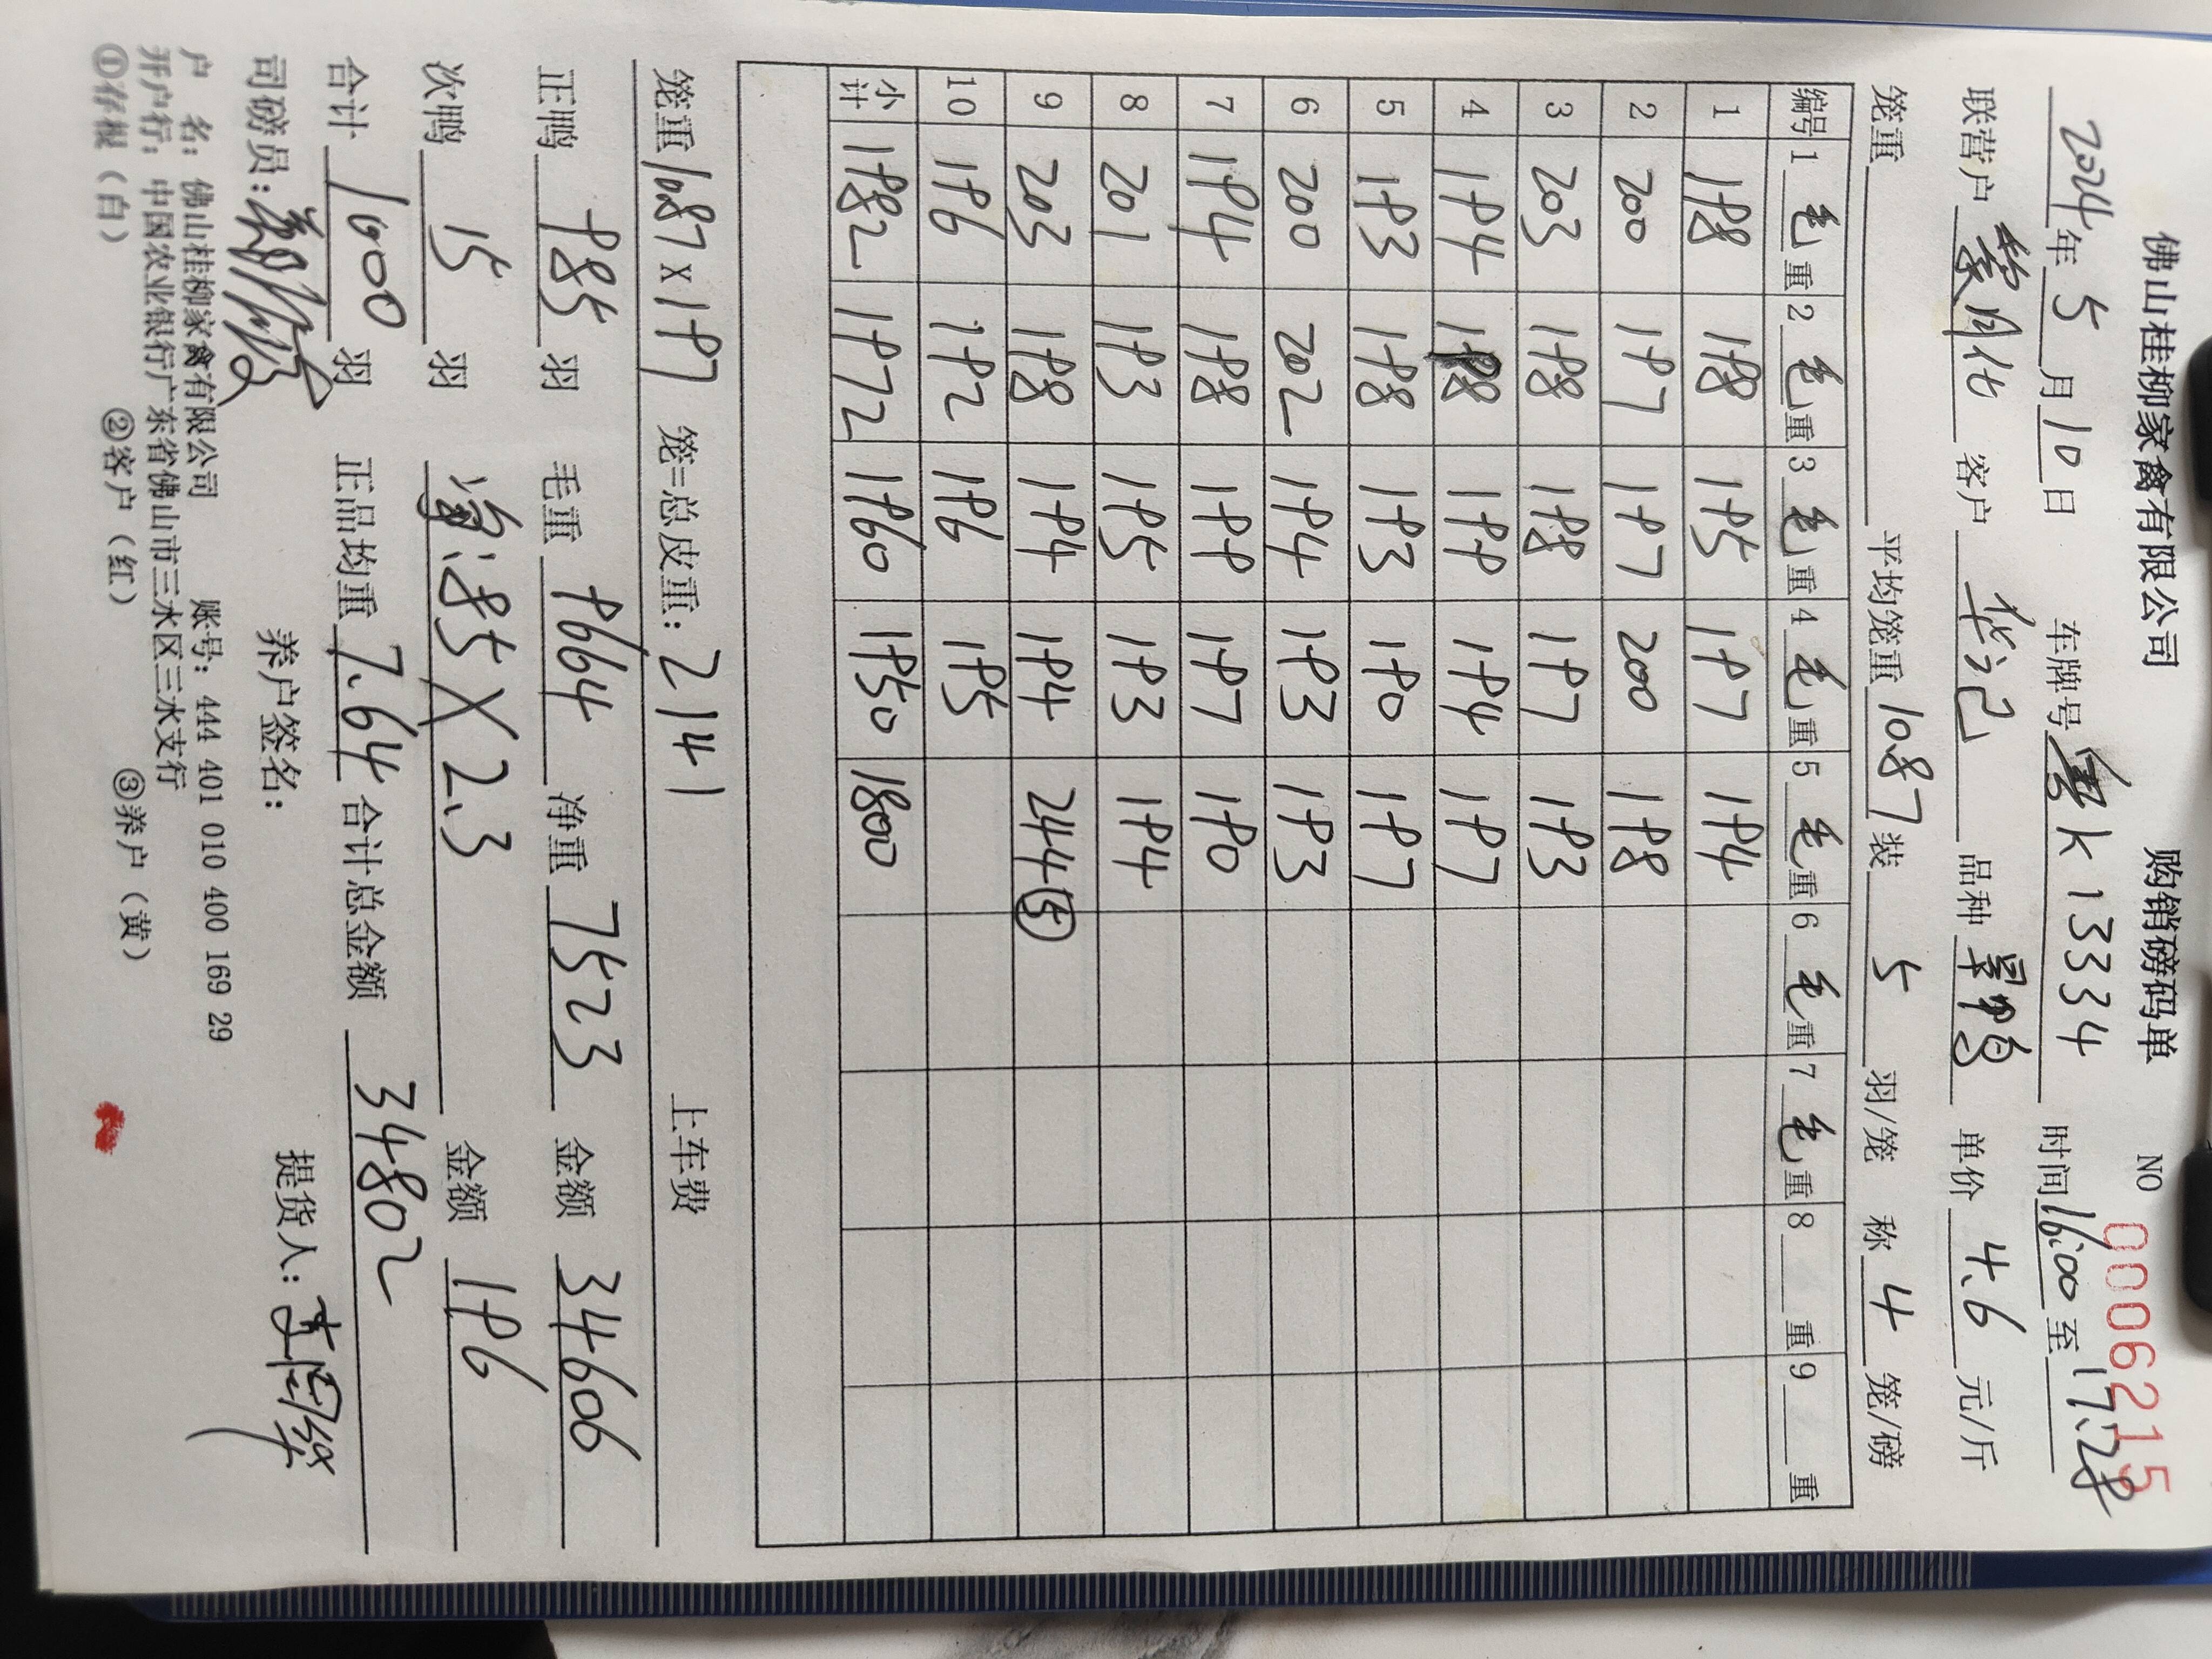 佛山桂柳家禽有限公司 购销磅码单 NO 0006215
2024年5月10日 车牌号粤K13334 时间16:00至17:28
联营户 客户 华记 品种 旱鸭 单价 4.6 元/斤
笼重 平均笼重 10.87 装 5 羽/笼 称 4 笼/磅
编号 1毛重 2毛重 3毛重 4毛重 5毛重 6毛重 7毛重 8 重 9 重
1 198 198 195 197 194
2 200 197 197 200 198
3 203 198 198 197 193
4 194 198 199 194 197
5 193 198 193 190 197
6 200 202 194 193 193
7 194 198 199 197 190
8 201 193 195 193 194
9 203 198 194 194 244⑮
10 196 192 196 195
小计 1982 1972 1960 1950 1800
笼重 10.87 x 197 笼=总皮重: 2141 上车费
正鸭 985 羽 毛重 9664 净重 7523 金额 34606
次鸭 15 羽 净:85 X 2.3 金额 196
合计 1000 羽 正品均重 7.64 合计总金额 34802
司磅员: 养户签名: 提货人:
户 名: 佛山桂柳家禽有限公司 账号: 444 401 010 400 169 29
开户行: 中国农业银行广东省佛山市三水区三水支行
①存根（白） ②客户（红） ③养户（黄）